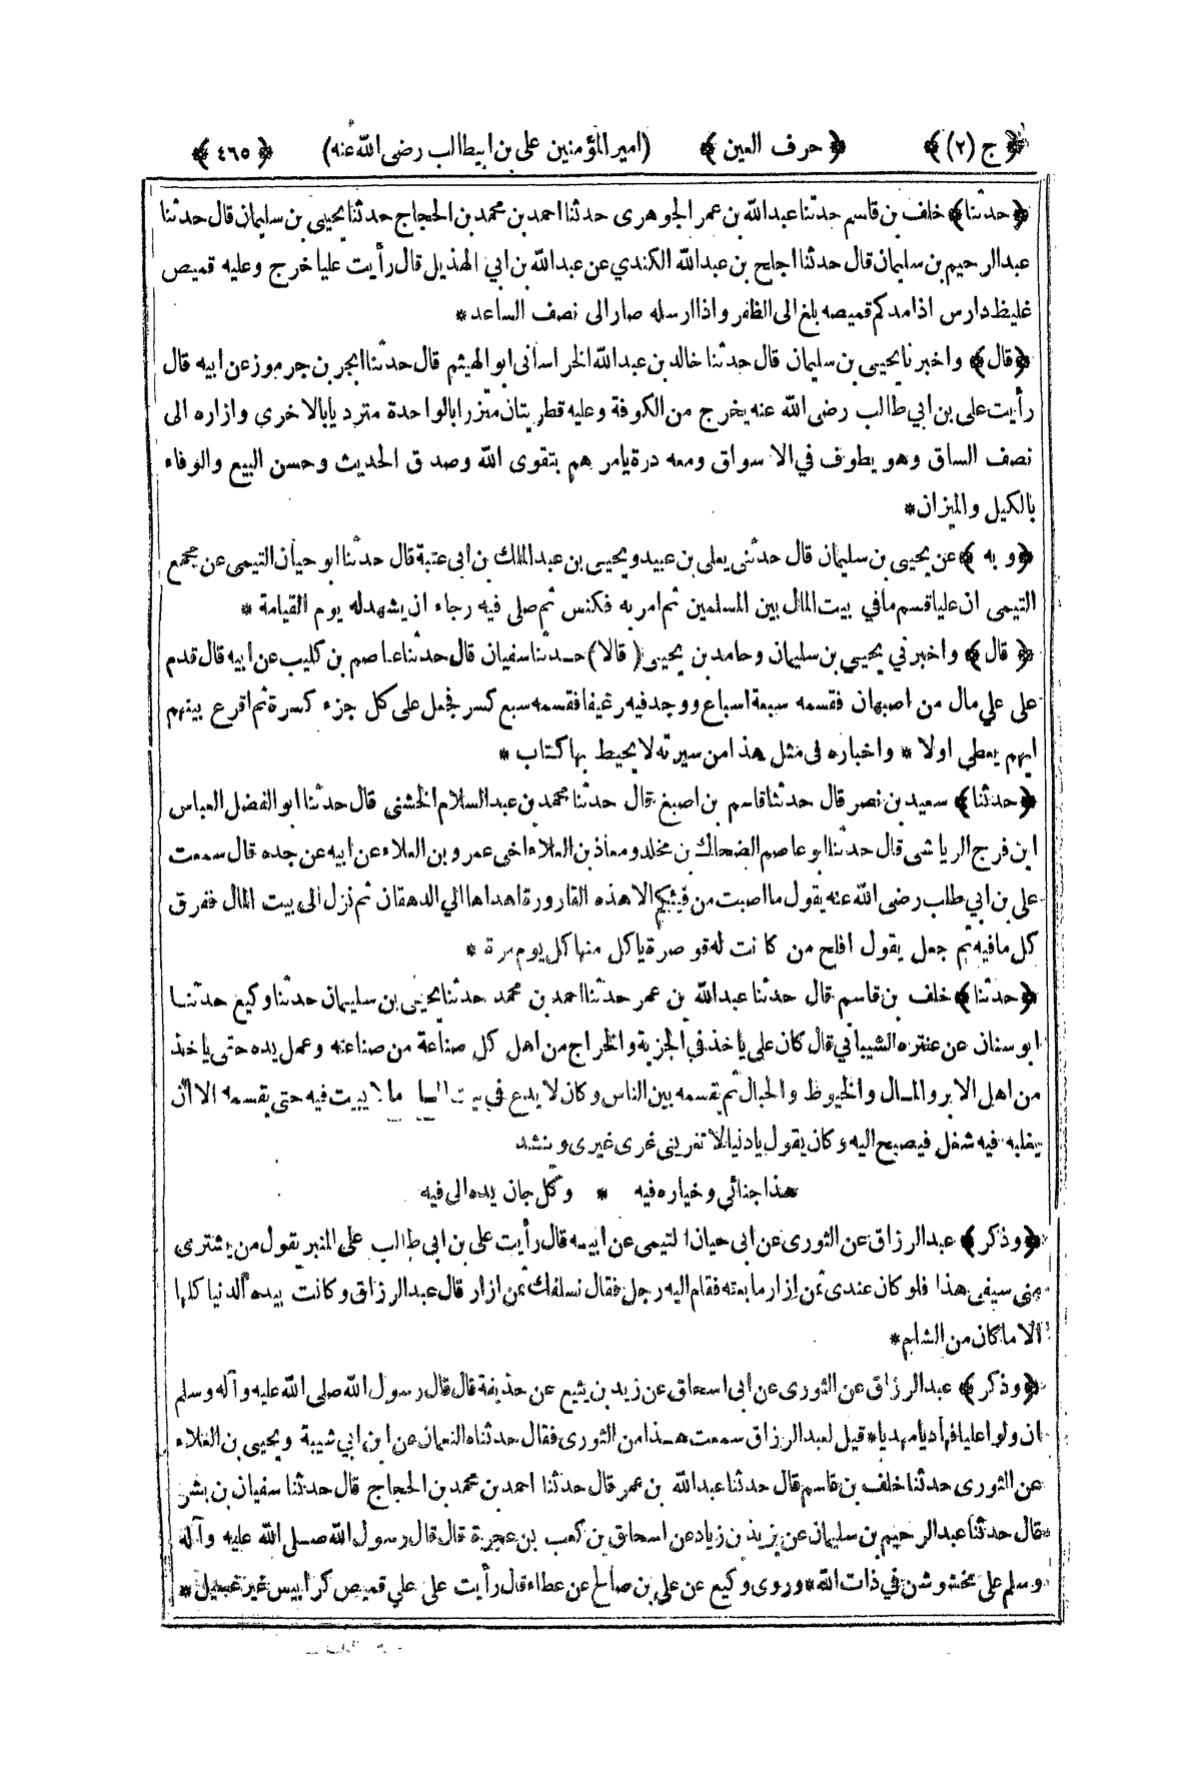 ﴿ ج (٢) ﴾ ﴿ حرف العين ﴾ (امير المؤمنين على بن ابيطالب رضى الله عنه) ﴿ ٤٦٥ ﴾
﴿حدثنا﴾ خلف بن قاسم حدثنا عبدالله بن عمر الجوهرى حدثنا احمد بن محمد بن الحجاج حدثنا يحيى بن سليمان قال حدثنا
عبدالرحيم بن سليمان قال حدثنا اجلح بن عبدالله الكندي عن عبدالله بن ابي الهذيل قال رأيت عليا خرج وعليه قميص
غليظ دارس اذا مد كم قميصه بلغ الى الظفر واذا ارسله صار الى نصف الساعد*
﴿قال﴾ واخبرنا يحيى بن سليمان قال حدثنا خالد بن عبدالله الخراسانى ابو الهيثم قال حدثنا ابجر بن جرموز عن ابيه قال
رأيت على بن ابي طالب رضى الله عنه يخرج من الكوفة وعليه قطريتان متزرا بالواحدة متردياً بالاخرى وازاره الى
نصف الساق وهو يطوف في الاسواق ومعه درة يامرهم بتقوى الله وصدق الحديث وحسن البيع والوفاء
بالكيل والميزان*
﴿وبه﴾ عن يحيى بن سليمان قال حدثنى يعلى بن عبيد ويحيى بن عبدالملك بن ابى عتبة قال حدثنا ابو حيان التيمى عن مجمع
التيمى ان عليا قسم ما في بيت المال بين المسلمين ثم امر به فكنس ثم صلى فيه رجاء ان يشهد له يوم القيامة *
﴿ قال﴾ واخبرني يحيى بن سليمان وحامد بن يحيى ( قالا) حدثنا سفيان قال حدثنا عاصم بن كليب عن ابيه قال قدم
على علي مال من اصبهان فقسمه سبعة اسباع ووجد فيه رغيفا فقسمه سبع كسر فجعل على كل جزء كسرة ثم اقرع بينهم
ايهم يعطي اولا * واخباره فى مثل هذا من سيرته لا يحيط بها كتاب *
﴿حدثنا﴾ سعيد بن نصر قال حدثنا قاسم بن اصبغ قال حدثنا محمد بن عبدالسلام الخشنى قال حدثنا ابو الفضل العباس
ابن فرج الرياشى قال حدثنا ابو عاصم الضحاك بن مخلد ومعاذ بن العلاء اخى عمرو بن العلاء عن ابيه عن جده قال سمعت
على بن ابي طلب رضى الله عنه يقول ما اصبت من فيئكم الا هذه القارورة اهداها الي الدهقان ثم نزل الى بيت المال ففرق
كل ما فيه ثم جعل يقول افلح من كانت له قوصرة ياكل منها كل يوم مرة *
﴿حدثنا﴾ خلف بن قاسم قال حدثنا عبدالله بن عمر حدثنا احمد بن محمد حدثنا يحيى بن سليمان حدثنا وكيع حدثنا
ابو سنان عن عنتره الشيباني قال كان على ياخذ في الجزية والخراج من اهل كل صناعة من صناعته وعمل يده حتى ياخذ
من اهل الابر والمسال والخيوط والحبال ثم يقسمه بين الناس وكان لا يدع في بيت ما لا يبيت فيه حتى يقسمه الا ان
يغلبه فيه شغل فيصبح اليه وكان يقول يا دنيا لا تغرينى غرى غيرى وينشد
هذا جنائي وخياره فيه * وكل جان يده الى فيه
﴿وذكر﴾ عبدالرزاق عن الثورى عن ابى حيان التيمى عن ابيه قال رأيت على بن ابى طالب على المنبر يقول من يشترى
منى سيفى هذا فلو كان عندى ثمن ازار ما بعته فقام اليه رجل فقال نسلفك ثمن ازار قال عبدالرزاق وكانت بيده الدنيا كلها
الا ما كان من الشام*
﴿وذكر﴾ عبدالرزاق عن الثورى عن ابى اسحاق عن زيد بن يثيع عن حذيفة قال قال رسول الله صلى الله عليه وآله وسلم
ان ولوا عليا فهاديا مهديا* قيل لعبدالرزاق سمعت هذا من الثورى فقال حدثناه النعمان عن ابن ابي شيبة ويحيى بن العلاء
عن الثورى حدثنا خلف بن قاسم قال حدثنا عبدالله بن عمر قال حدثنا احمد بن محمد بن الحجاج قال حدثنا سفيان بن بشر
قال حدثنا عبدالرحيم بن سليمان عن يزيد بن زياد عن اسحاق بن كعب بن عجرة قال قال رسول الله صلى الله عليه وآله
وسلم على مخشوشن في ذات الله* وروى وكيع عن على بن صالح عن عطاء قال رأيت على علي قميص كرابيس غير غسيل*